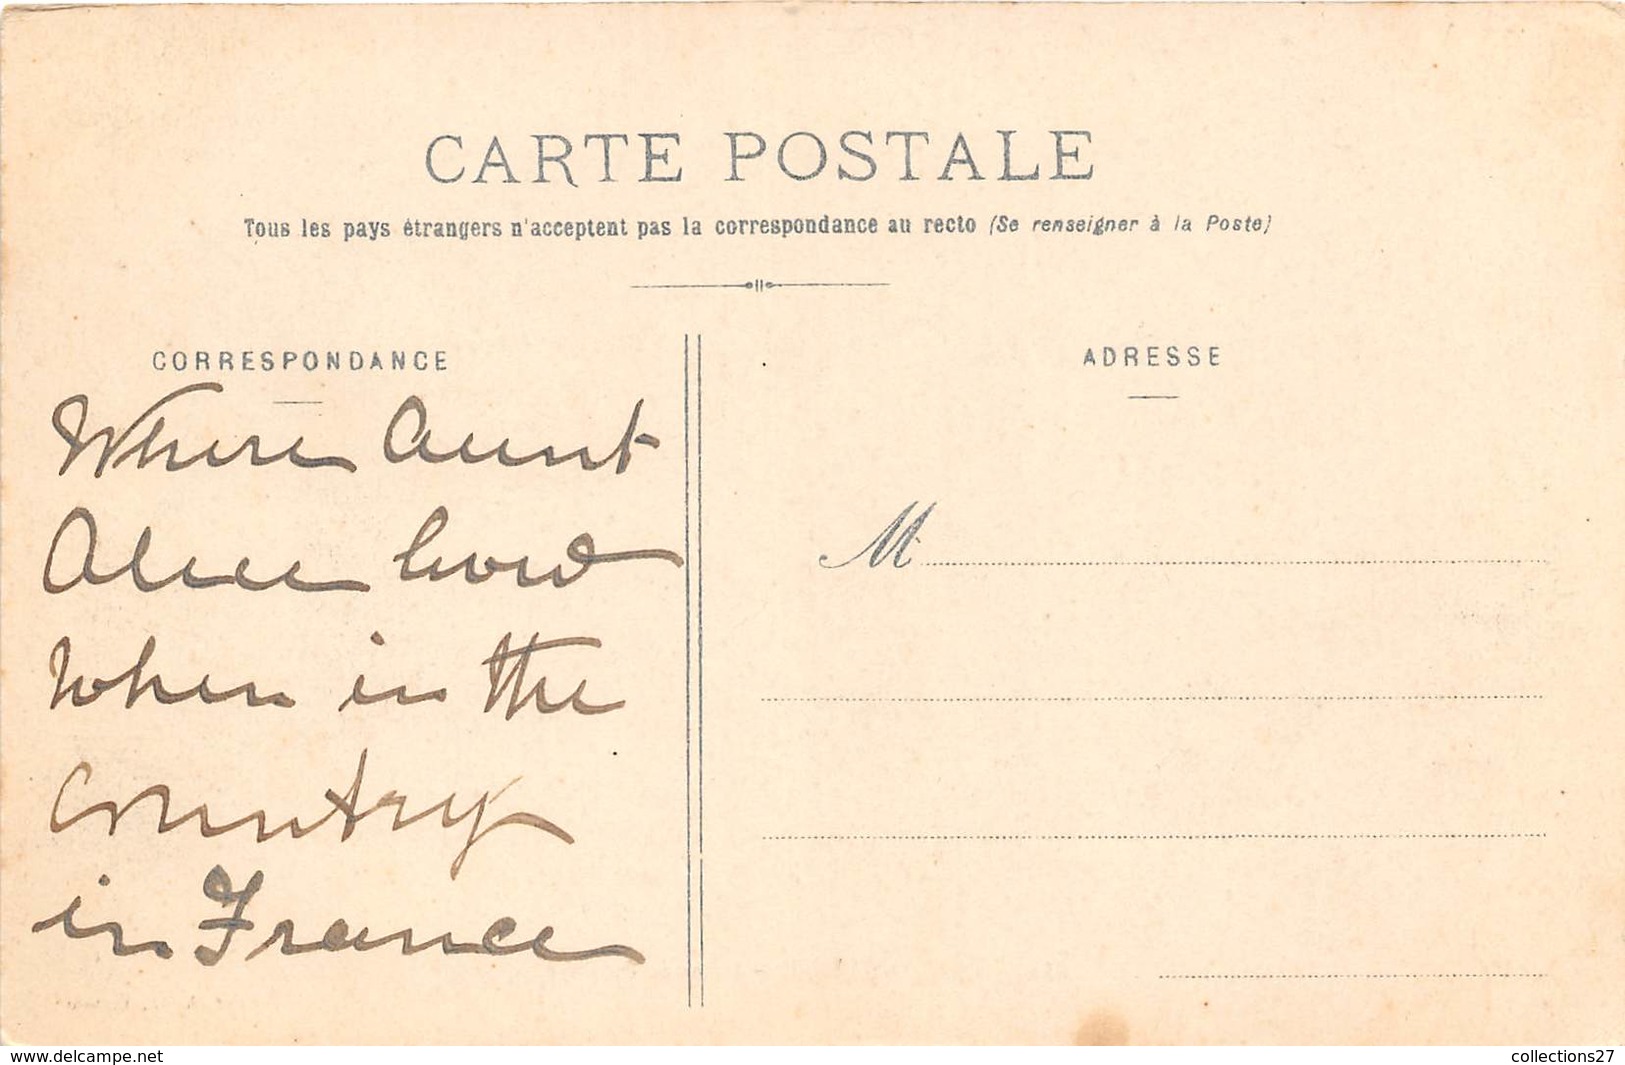 CARTE POSTALE
Tous les pays étrangers n'acceptent pas la correspondance au recto (Se renseigner à la Poste)
CORRESPONDANCE
ADRESSE
Where Aunt
Alice lived
when in the
country
in France
M
www.delcampe.net
collections27